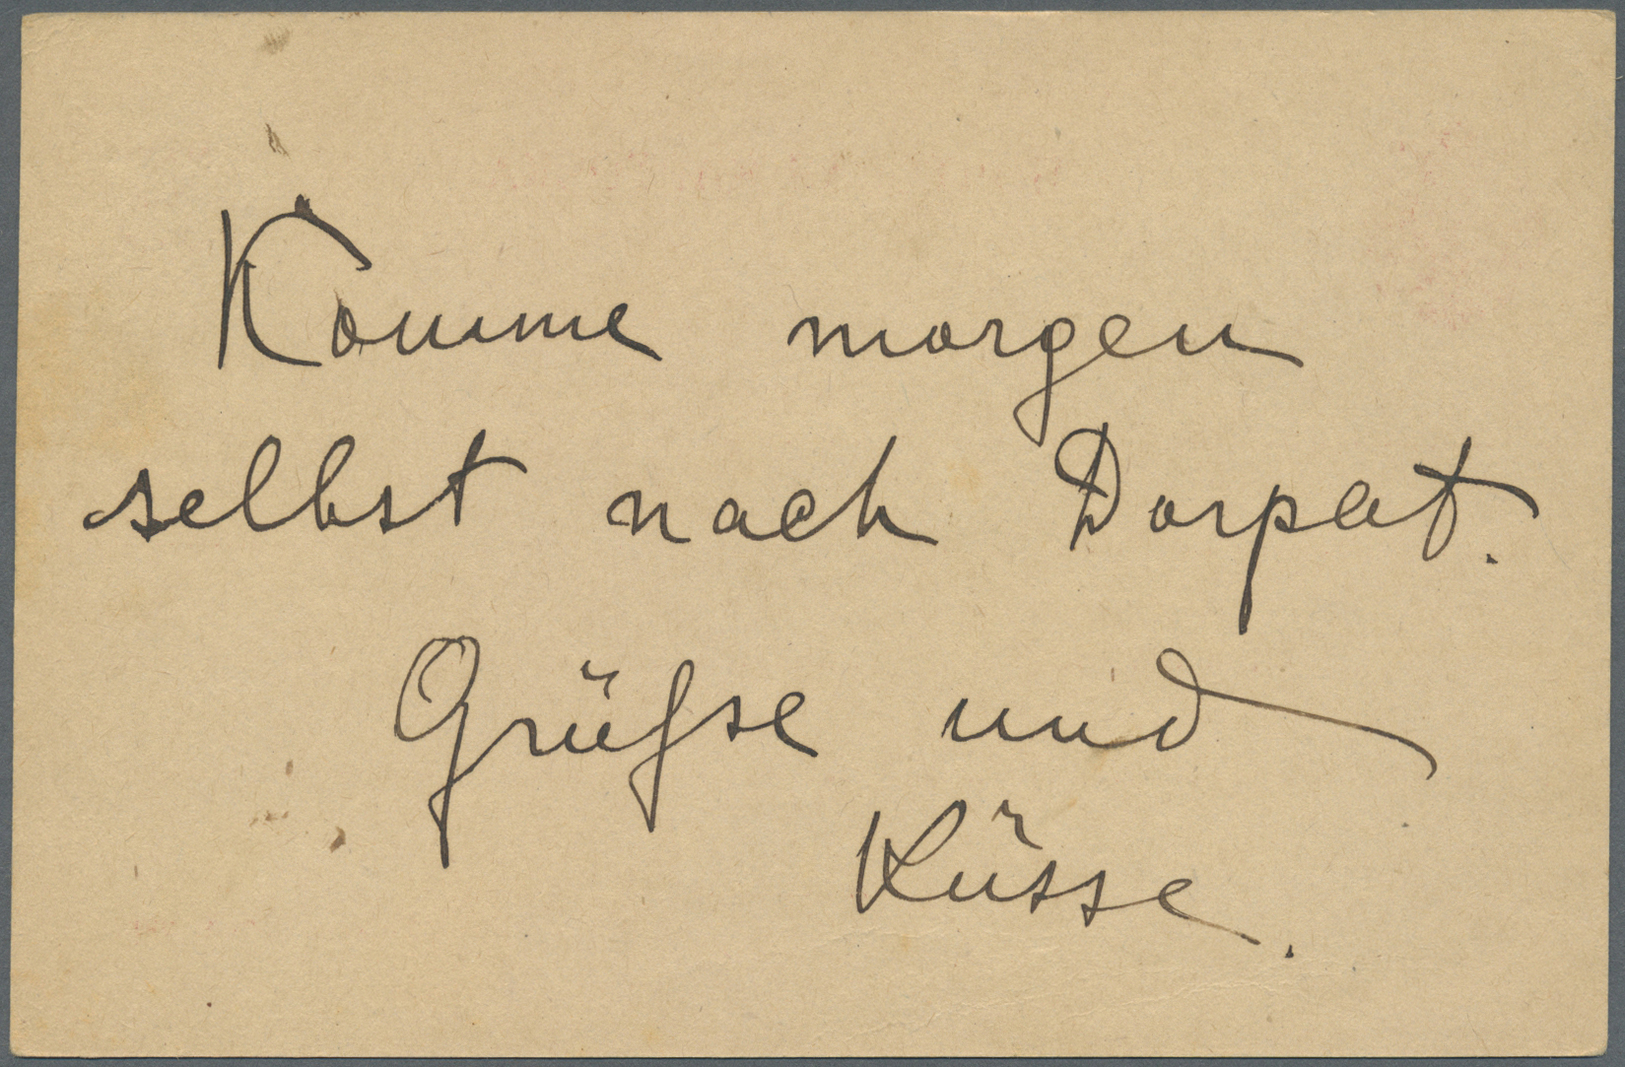 Komme morgen
selbst nach Dorpat.
Grüſse und
Küsse.